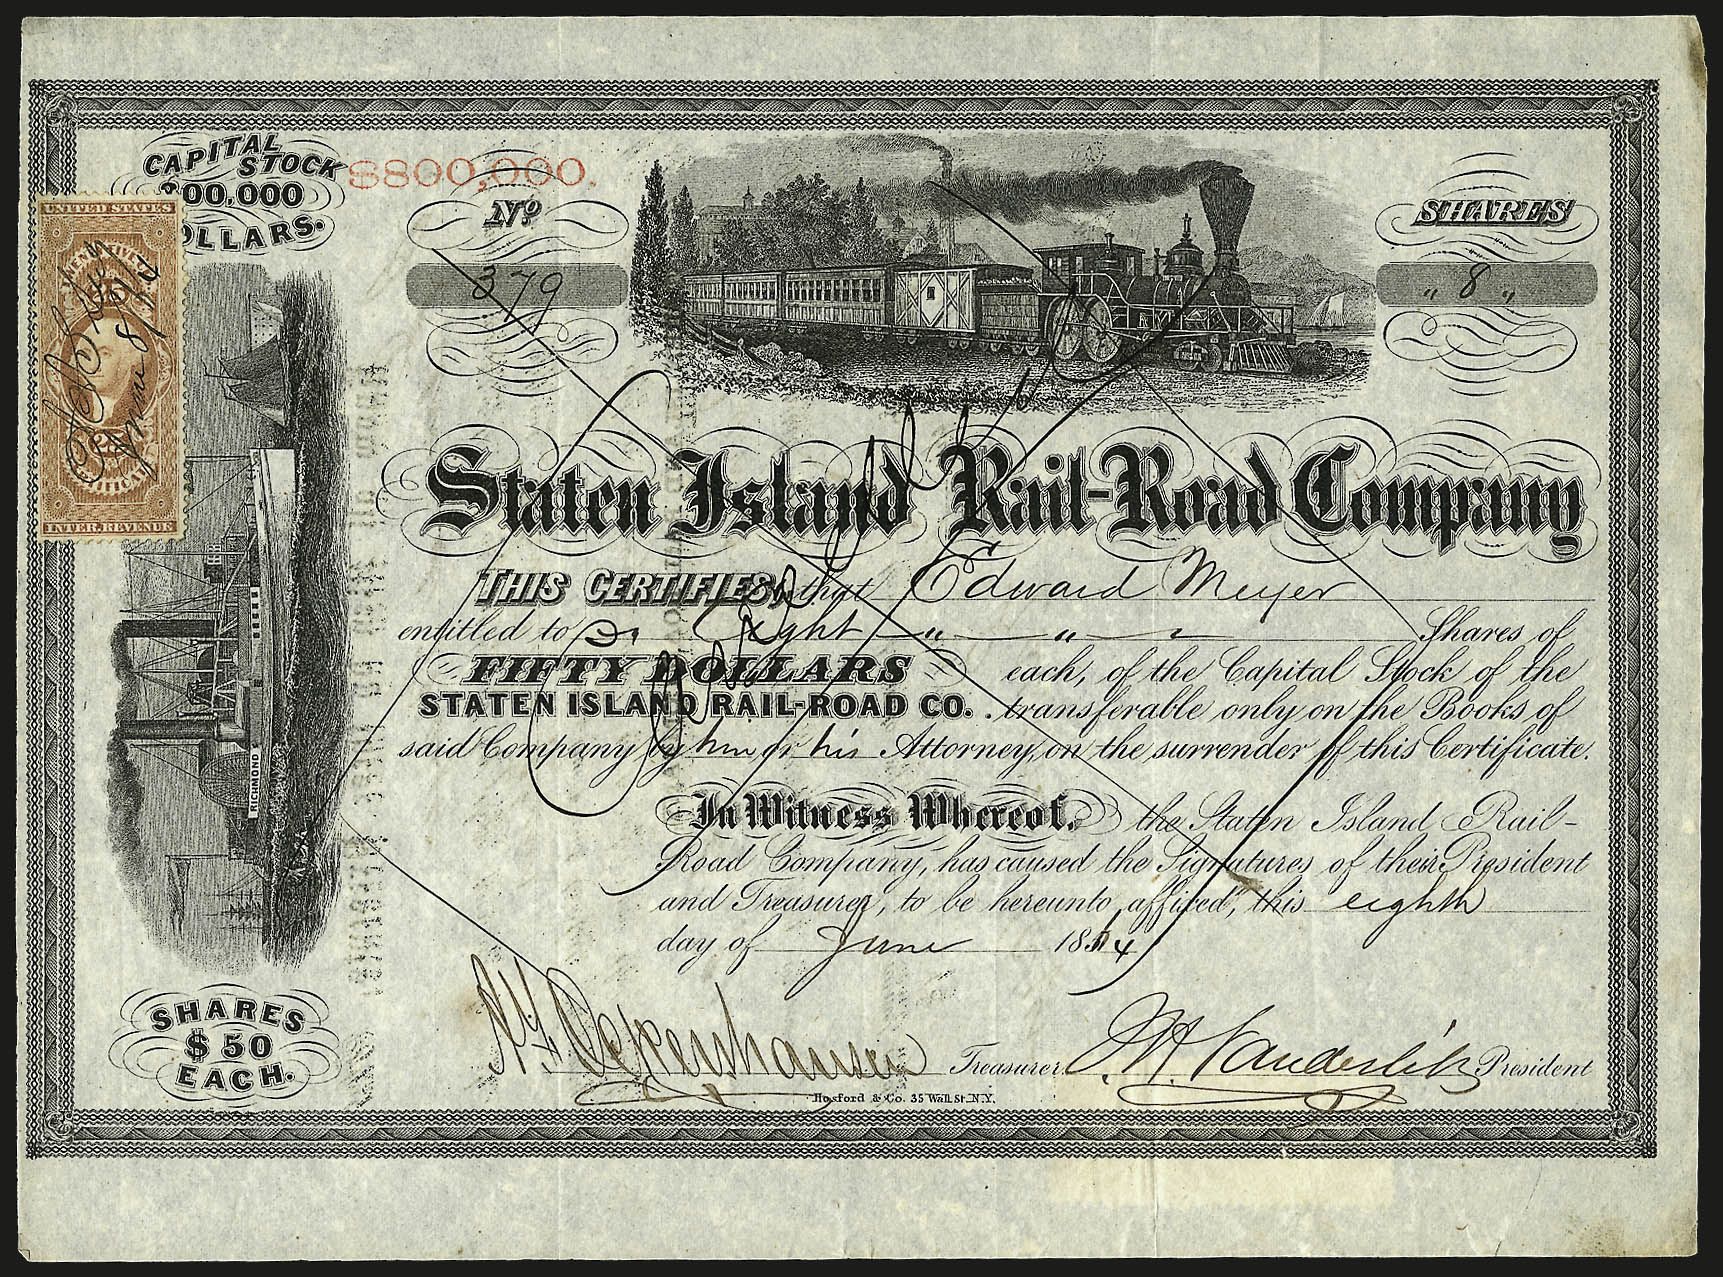 CAPITAL
STOCK
00,000
DOLLARS.
$800,000.
UNITED STATES
25
June 8/64
INTER. REVENUE
No
379
SHARES
" 8 "
RICHMOND
Staten Island Rail-Road Company
THIS CERTIFIES, that Edward Meyer
entitled to Eight " " " Shares of
FIFTY DOLLARS each, of the Capital Stock of the
STATEN ISLAND RAIL-ROAD CO. transferable only on the Books of
said Company by him or his Attorney, on the surrender of this Certificate.
In Witness Whereof, the Staten Island Rail-
Road Company, has caused the Signatures of their President
and Treasurer, to be hereunto affixed, this eighth
day of June 1864
Treasurer J. H. Vanderbilt President
Hosford & Co. 35 Wall St. N.Y.
SHARES
$50
EACH.
Cancelled